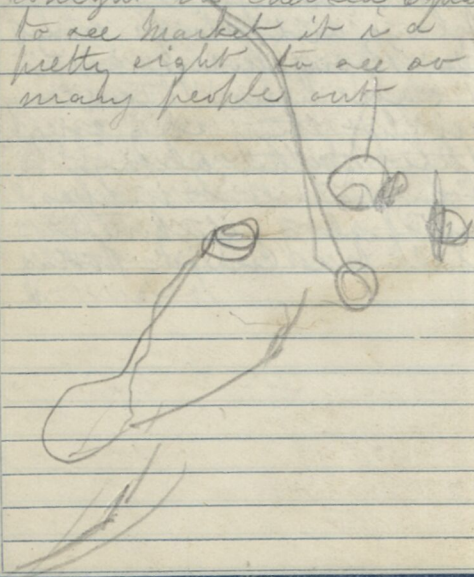 to see Market it is a
pretty sight to see so
many people out